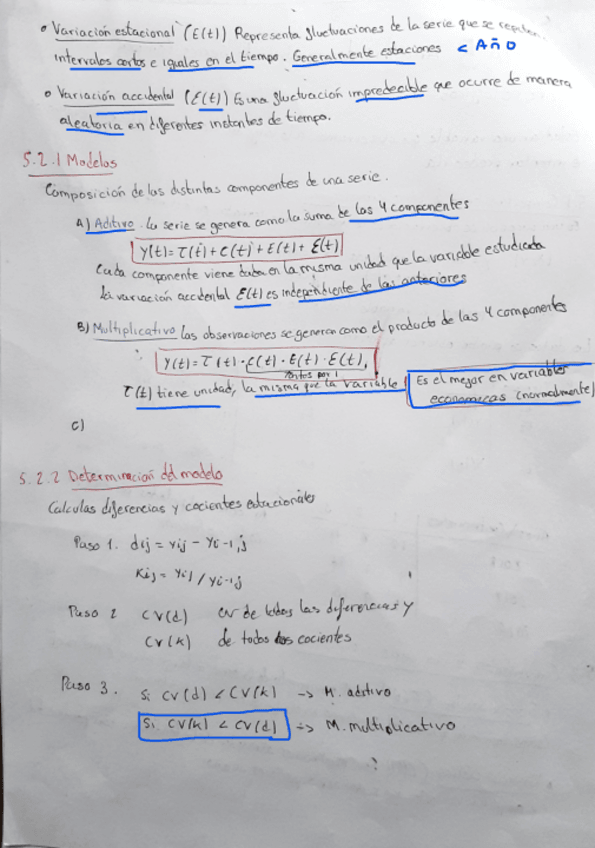 • Variación estacional (E(t)) Representa fluctuaciones de la serie que se repiten
intervalos cortos e iguales en el tiempo. Generalmente estaciones < AÑO
• Variación accidental (Ɛ(t)) Es una fluctuación impredecible que ocurre de manera
aleatoria en diferentes instantes de tiempo.
5.2.1 Modelos
Composición de las distintas componentes de una serie.
A) Aditivo. La serie se genera como la suma de las 4 componentes
Y(t) = T(t) + C(t) + E(t) + Ɛ(t)
Cada componente viene dada en la misma unidad que la variable estudiada
la variación accidental Ɛ(t) es independiente de las anteriores
B) Multiplicativo las observaciones se generan como el producto de las 4 componentes
Y(t) = T(t) · C(t) · E(t) · Ɛ(t),
tantos por 1
T(t) tiene unidad, la misma que la variable
Es el mejor en variables
economicas (normalmente)
C)
5.2.2 Determinación del modelo
Calculas diferencias y cocientes estacionales
Paso 1. dij = Yij - Yi-1,j
Kij = Yij / Yi-1j
Paso 2 CV(d) CV de todas las diferencias y
CV(k) de todos los cocientes
Paso 3. Si CV(d) < CV(k) -> M. aditivo
Si CV(k) < CV(d) -> M. multiplicativo